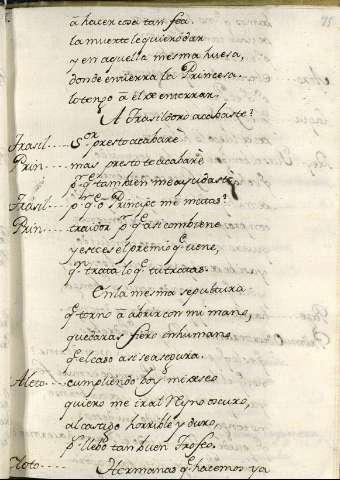 75
a hacer cosa tan fea.
la muerte le quiero dar
y en aquella mesma huesa,
donde entierra la Princesa.
lo tengo a el de enterrar.
A Frasildoro acabaste?
Frasil.... Sor. presto acabarè
Prin.... mas presto te acabarè
pr q tambien me ayudaste
Frasil... pr q o Principe me matas?
Prin.... traidor pr q asi combiene
y este es el premio q viene,
qn trata lo q tu tratas.
En la mesma sepultura
q torno a abrir con mi mano,
quedaras fiero inhumano,
q el caso asi se asegura.
Aleto.... cumpliendo hoy mi deseo
quiero me ir al Reyno oscuro,
al castigo horrible y duro,
ps llebo tan buen Trofeo.
Cloto.... Hermanas q hacemos ya